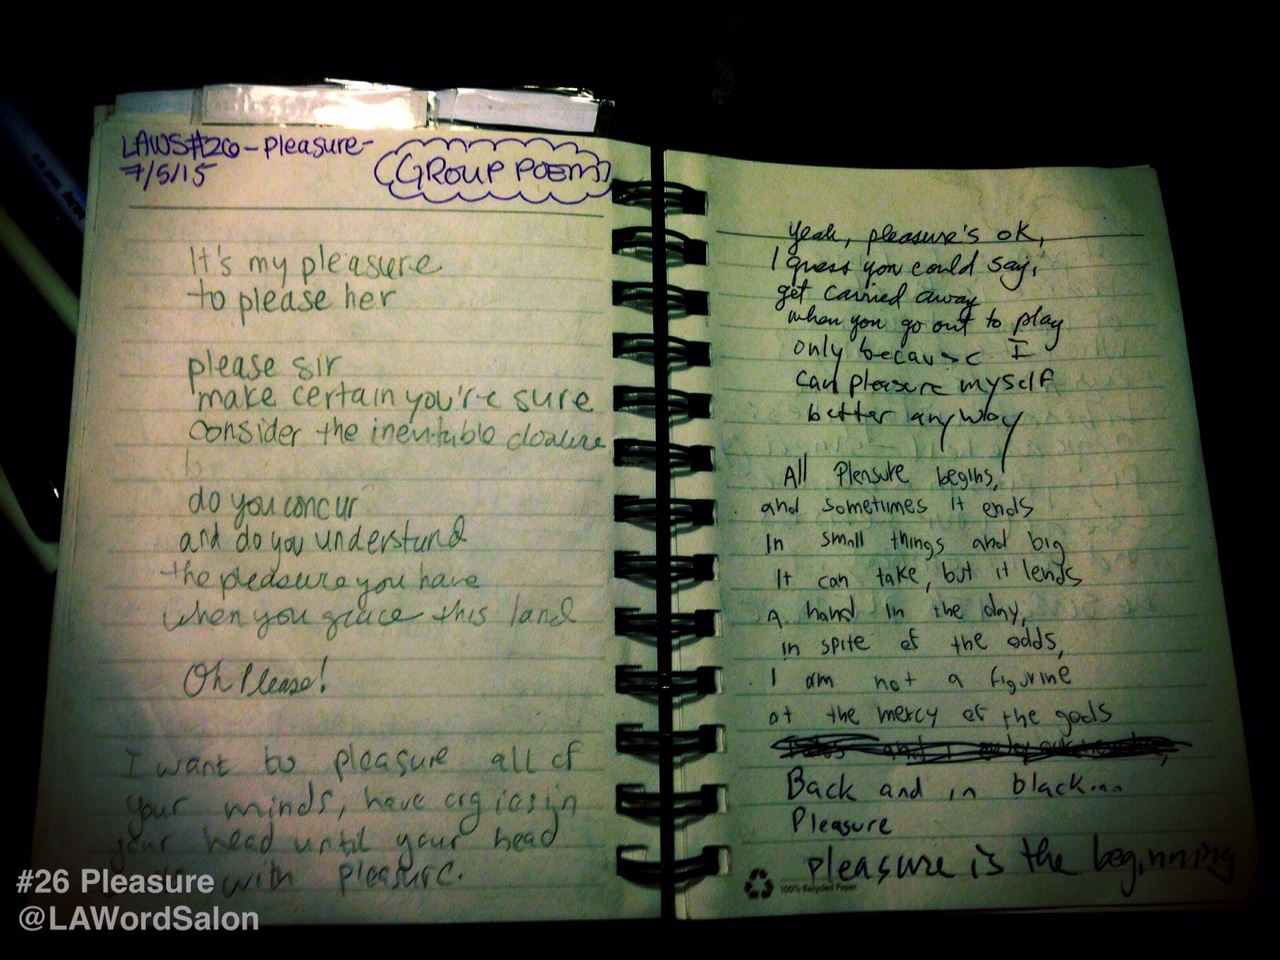 LAWS#26-pleasure-
7/5/15
GROUP POEM
It's my pleasure
to please her
please sir
make certain you're sure
consider the inevitable closure
do you concur
and do you understand
the pleasure you have
when you grace this land
Oh Please!
I want to pleasure all of
your minds, have orgies in
your head until your head
with pleasure.
yeah, pleasure's ok,
I guess you could say,
get carried away
when you go out to play
only because I
can pleasure myself
better anyway
All Pleasure begins,
and sometimes it ends
In small things and big
It can take, but it lends
A hand in the day,
in spite of the odds,
I am not a figurine
at the mercy of the gods
Back and in black...
Pleasure
pleasure is the beginning
100% Recycled Paper
#26 Pleasure
@LAWordSalon